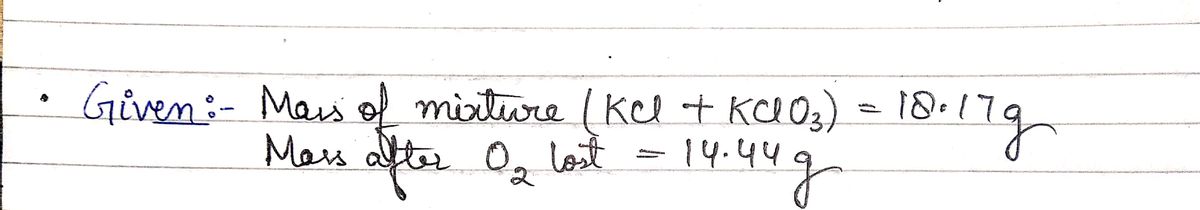 • Given :- Mass of mixture ( KCl + KClO₃) = 18.17g
Mass after O₂ lost = 14.44g